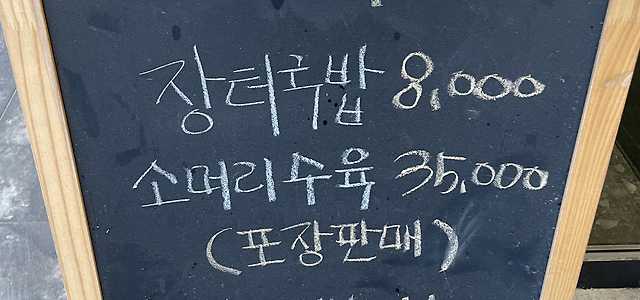 장터국밥 8,000
소머리수육 35,000
(포장판매)